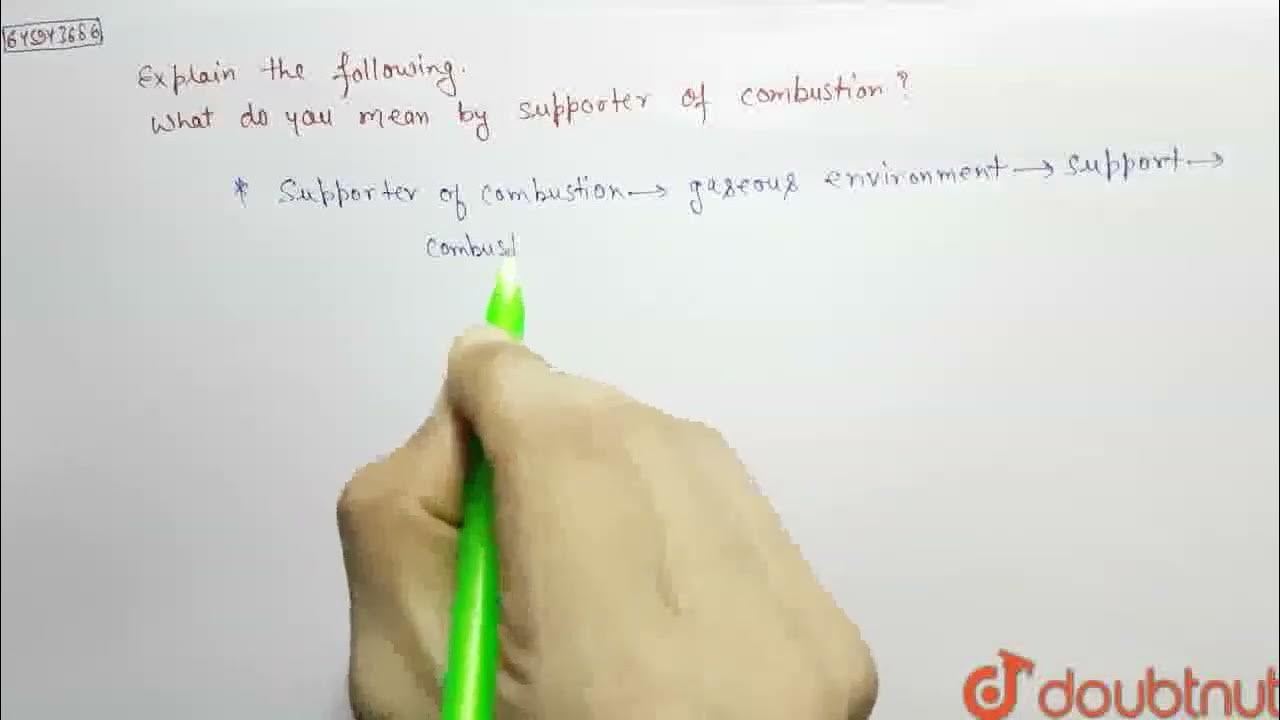 Explain the following.
What do you mean by supporter of combustion?
* Supporter of combustion → gaseous environment → support →
combust
doubtnut